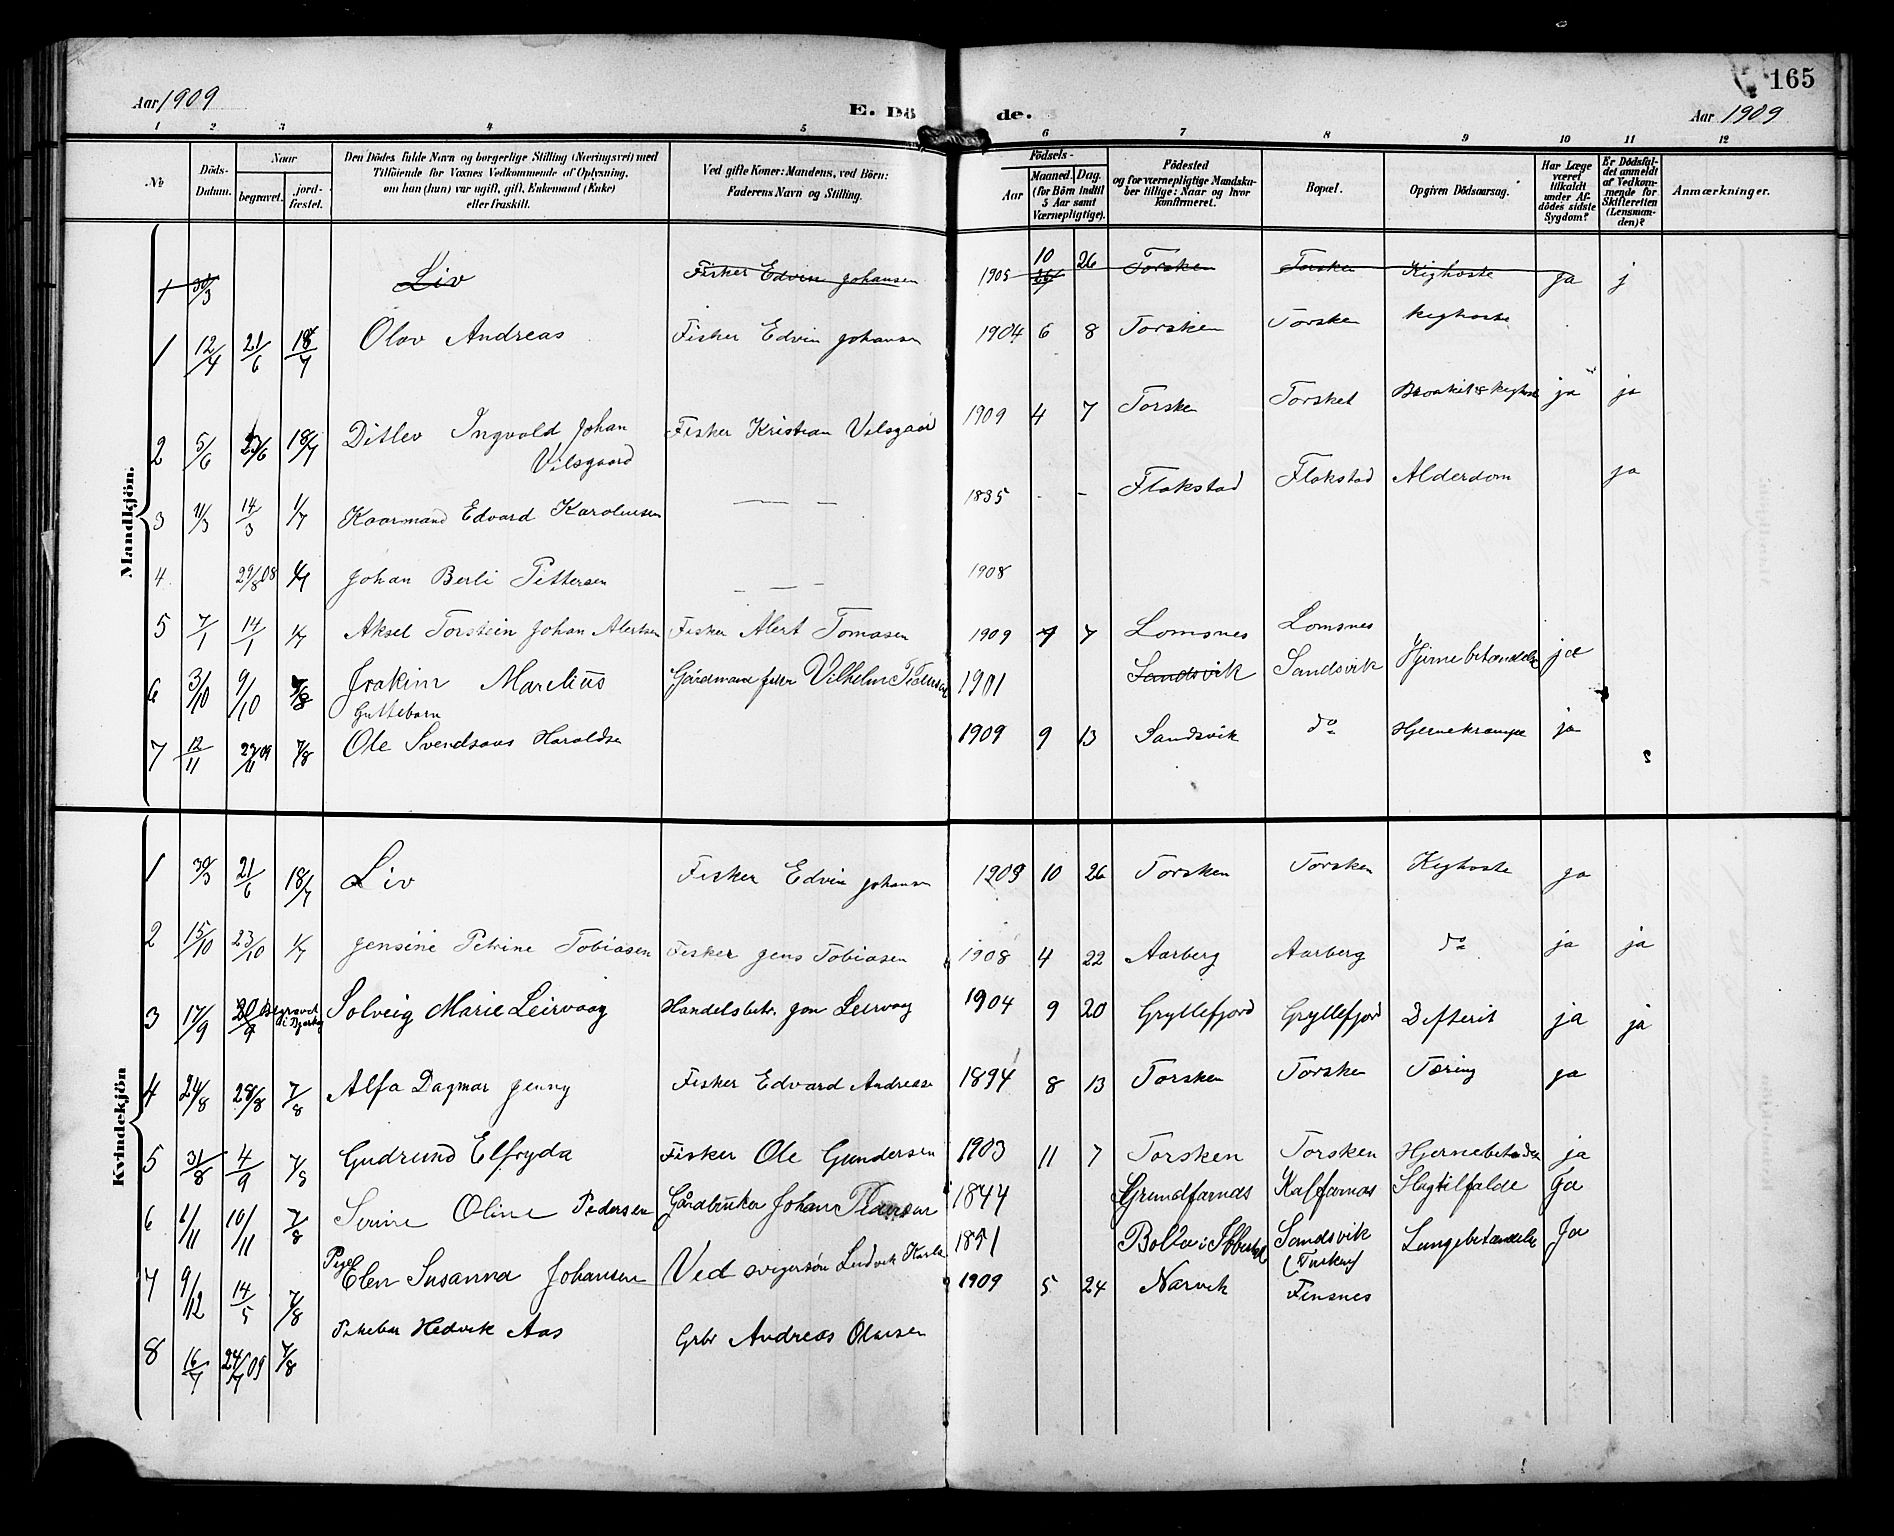 165
Aar 1909 E. Dö de. Aar 1909
1 2 3 4 5 6 7 8 9 10 11 12
No
Döds-Datum.
Naar
begravet. jord-fæstet.
Den Dödes fulde Navn og borgerlige Stilling (Næringsvei) med
Tilföiende for Voxnes Vedkommende af Oplysning,
om han (hun) var ugift, gift, Enkemand (Enke)
eller fraskilt.
Ved gifte Koner: Mandens, ved Börn:
Faderens Navn og Stilling.
Födsels-
Aar Maaned. Dag.
(for Börn indtil
5 Aar samt
Værnepligtige).
Födested
og for værnepligtige Mandska-
ber tillige: Naar og hvor
konfirmeret.
Bopæl.
Opgiven Dödsaarsag.
Har Læge
været
tilkaldt
under Af-
dödes sidste
Sygdom?
Er Dödsfal-
det anmeldt
af Vedkom-
mende for
Skifteretten
(Lensman-
den)?
Anmærkninger.
Mandkjön.
1 30/3 Liv Fisker Edvin Johansen 1905 10 26 Torsken Torsken Kighoste ja j
1 12/4 21/6 18/7 Olav Andreas Fisker Edvin Johansen 1904 6 8 Torsken Torsken Kighoste
2 5/6 23/6 18/7 Ditlev Ingvold Johan Vilsgaard Fisker Kristian Vilsgaard 1909 4 7 Torsken Torsket Kighoste ja ja
3 11/3 14/3 1/7 Kaarmand Edvard Karolinsen — — 1835 - - Flakstad Flakstad Alderdom ja
4 29/8 08 1/7 Johan Berli Pettersen — — 1908
5 7/1 14/1 1/7 Aksel Torstein Johan Alertsen Fisker Alert Tomasen 1909 7 Lomsnes Lomsnes
6 3/10 9/10 7/8 Joakim Marelius Gårdmand Vilhelm 1901 Sandsvik Sandsvik Hjernebetændelse ja
7 12/11 27/11 09 7/8 Guttebarn Ole Svendsons Haralds 1909 9 13 Sandsvik do Hjernekrampe ja
Kvindekjön
1 30/3 21/6 18/7 Liv Fisker Edvin Johansen 10 26 Torsken Torsken Kighoste ja
2 15/10 23/10 1/7 Jensine Petrine Tobiasen Fisker Jens Tobiasen 1908 4 22 Aarberg Aarberg do ja ja
3 17/9 20/9 Begravet i Solveig Marie Leirvaag Handelsbetr. Jon Leirvaag 1904 9 20 Gryllefjord Gryllefjord Difterit ja ja
4 24/8 28/8 7/8 Alfa Dagmar Jenny Fisker Edvard Andreas 1894 8 13 Torsken Torsken Tæring ja
5 31/8 4/9 7/8 Gudrund Elfryda Fisker Ole Gundersen 1903 11 7 Torsken Torsken Hjernebetænd ja
6 10/11 7/8 Oline Pedersen Gårdbruker Johan 1844 Grundfarnes Kalfarnes Slagtilfalde Ja
7 9/12 14/5 7/8 Elen Susanna Johansen Ved svigersön Ludvik Karls Bolla i Ibbestad Sandsvik (Torsken) Lungebetændelse Ja
8 16/7 24/7 09 7/8 Pikebar Hedvik Aas Grbr Andreas Olausen 1909 5 24 Narvik Finsnes